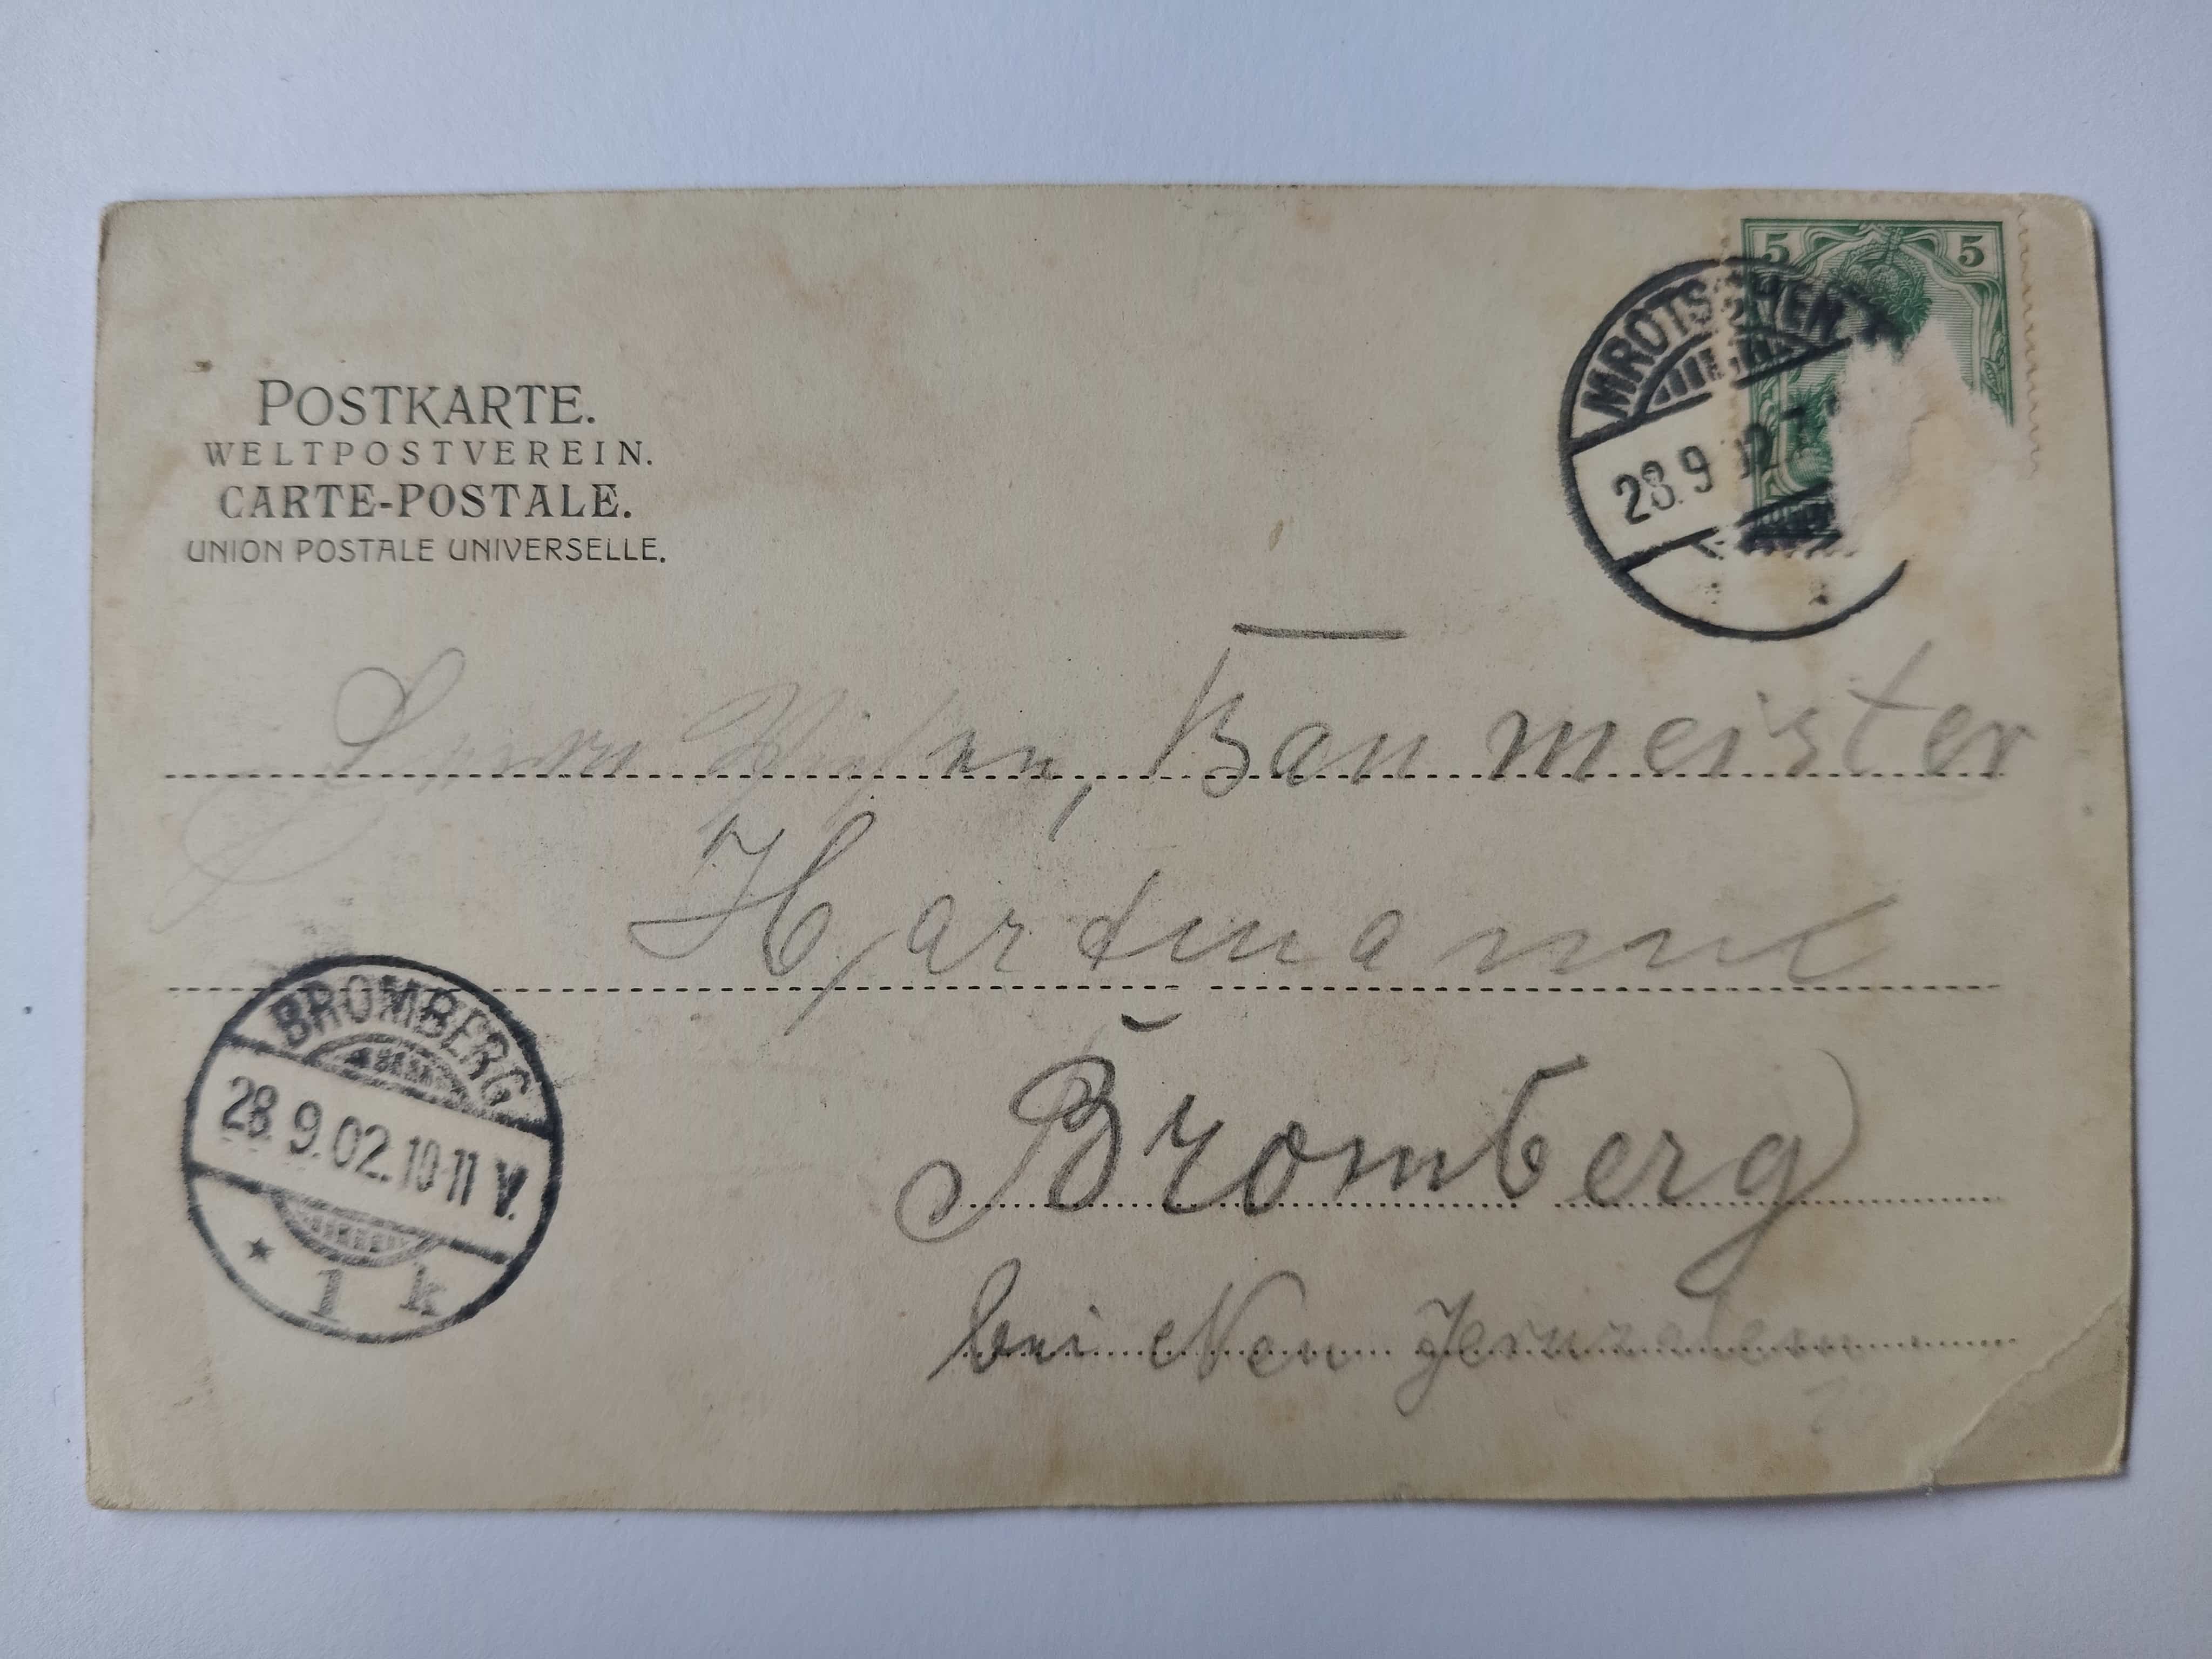 POSTKARTE.
WELTPOSTVEREIN.
CARTE-POSTALE.
UNION POSTALE UNIVERSELLE.
5 5
MROTSCHEN
28.9.02.7
Herrn Baumeister
Hardmann
Bromberg
bei Neu Jeruzalem
BROMBERG
28.9.02.10-11 V.
* 1 k